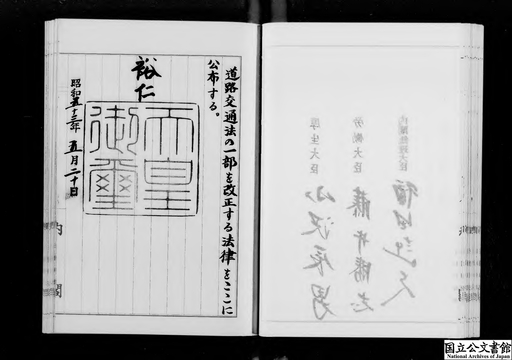 道路交通法の一部を改正する法律をここに
公布する。
裕仁
天皇
御璽
昭和五十三年五月二十日
内閣
内閣総理大臣 福田赳夫
労働大臣 藤井勝志
厚生大臣 小沢辰男
国立公文書館
National Archives of Japan